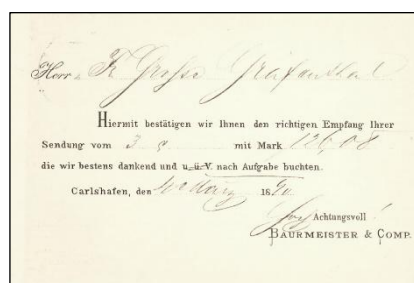 Herrn Fr. Grosse Gräfenthal
Hiermit bestätigen wir Ihnen den richtigen Empfang Ihrer
Sendung vom 3 mit Mark 126,08
die wir bestens dankend und u. ü. V. nach Aufgabe buchten.
Carlshafen, den 10 März 1890
Achtungsvoll
BAURMEISTER & COMP.